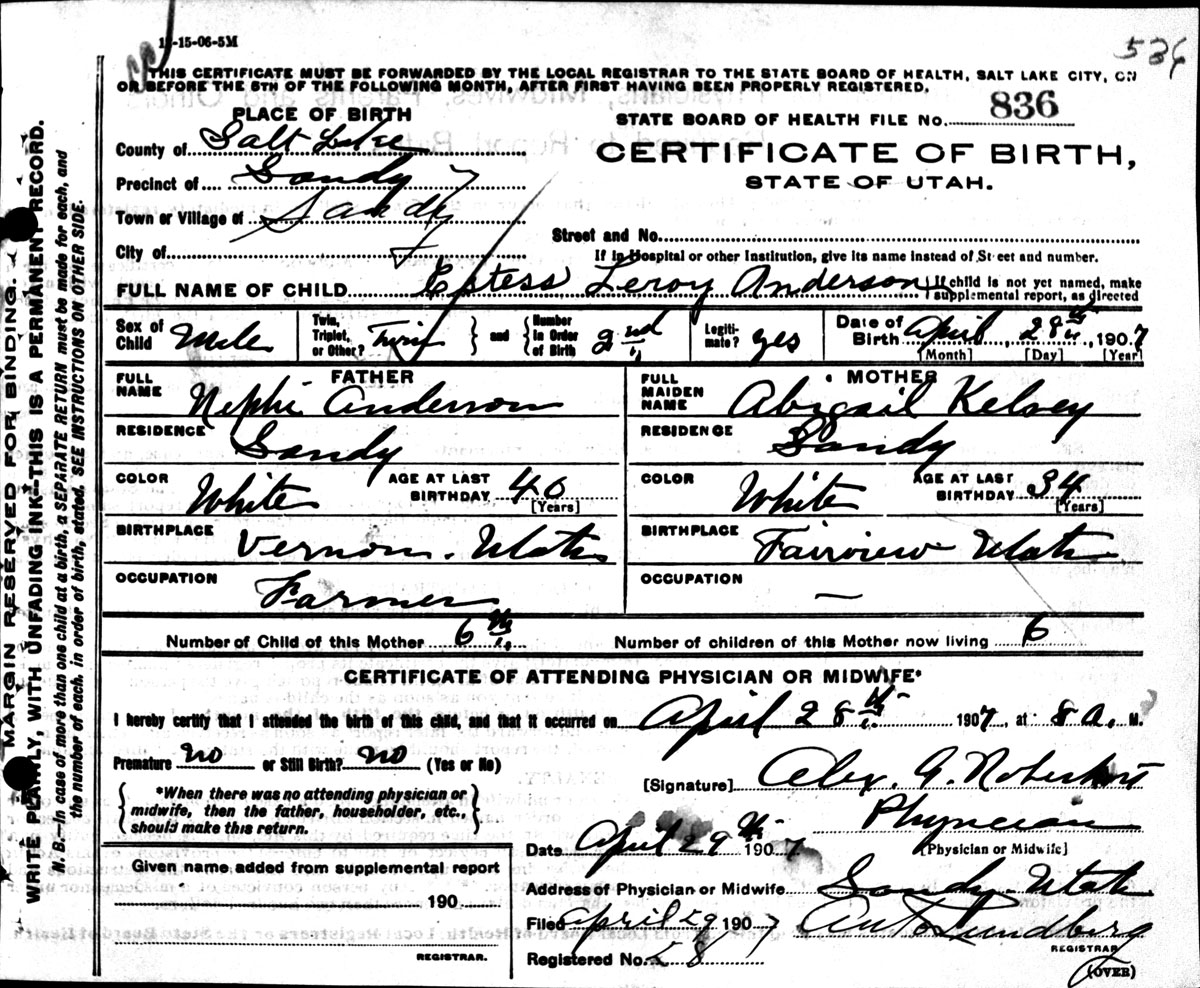 1-15-06-5M
536
THIS CERTIFICATE MUST BE FORWARDED BY THE LOCAL REGISTRAR TO THE STATE BOARD OF HEALTH, SALT LAKE CITY, ON
OR BEFORE THE 5TH OF THE FOLLOWING MONTH, AFTER FIRST HAVING BEEN PROPERLY REGISTERED.
PLACE OF BIRTH
STATE BOARD OF HEALTH FILE No. 836
County of Salt Lake
CERTIFICATE OF BIRTH,
Precinct of Sandy
STATE OF UTAH.
Town or Village of Sandy
Street and No.
City of
If in Hospital or other Institution, give its name instead of Street and number.
FULL NAME OF CHILD Estess Leroy Anderson If child is not yet named, make
supplemental report, as directed
Sex of Child Male Twin, Triplet, or Other? Twin and Number in Order of Birth 2nd Legitimate? yes Date of Birth April 28th, 1907
[Month] [Day] [Year]
FATHER
MOTHER
FULL NAME Nephi Anderson
FULL MAIDEN NAME Abigail Kelsey
RESIDENCE Sandy
RESIDENCE Sandy
COLOR White AGE AT LAST BIRTHDAY 40 [Years]
COLOR White AGE AT LAST BIRTHDAY 34 [Years]
BIRTHPLACE Vernon. Utah
BIRTHPLACE Fairview Utah
OCCUPATION Farmer
OCCUPATION —
Number of Child of this Mother 6th
Number of children of this Mother now living 6
CERTIFICATE OF ATTENDING PHYSICIAN OR MIDWIFE*
I hereby certify that I attended the birth of this child, and that it occurred on April 28th 1907, at 8 A. M.
Premature no or Still Birth? no (Yes or No)
[Signature] Alex. G. Robertson
*When there was no attending physician or
midwife, then the father, householder, etc.,
should make this return.
Physician
[Physician or Midwife]
Date April 29th 1907
Given name added from supplemental report
190
REGISTRAR.
Address of Physician or Midwife Sandy Utah
Filed April 29 1907 Lundberg
REGISTRAR
Registered No. 28
(OVER)
MARGIN RESERVED FOR BINDING.
WRITE PLAINLY, WITH UNFADING INK—THIS IS A PERMANENT RECORD.
N. B.—In case of more than one child at a birth, a SEPARATE RETURN must be made for each, and
the number of each, in order of birth, stated. SEE INSTRUCTIONS ON OTHER SIDE.